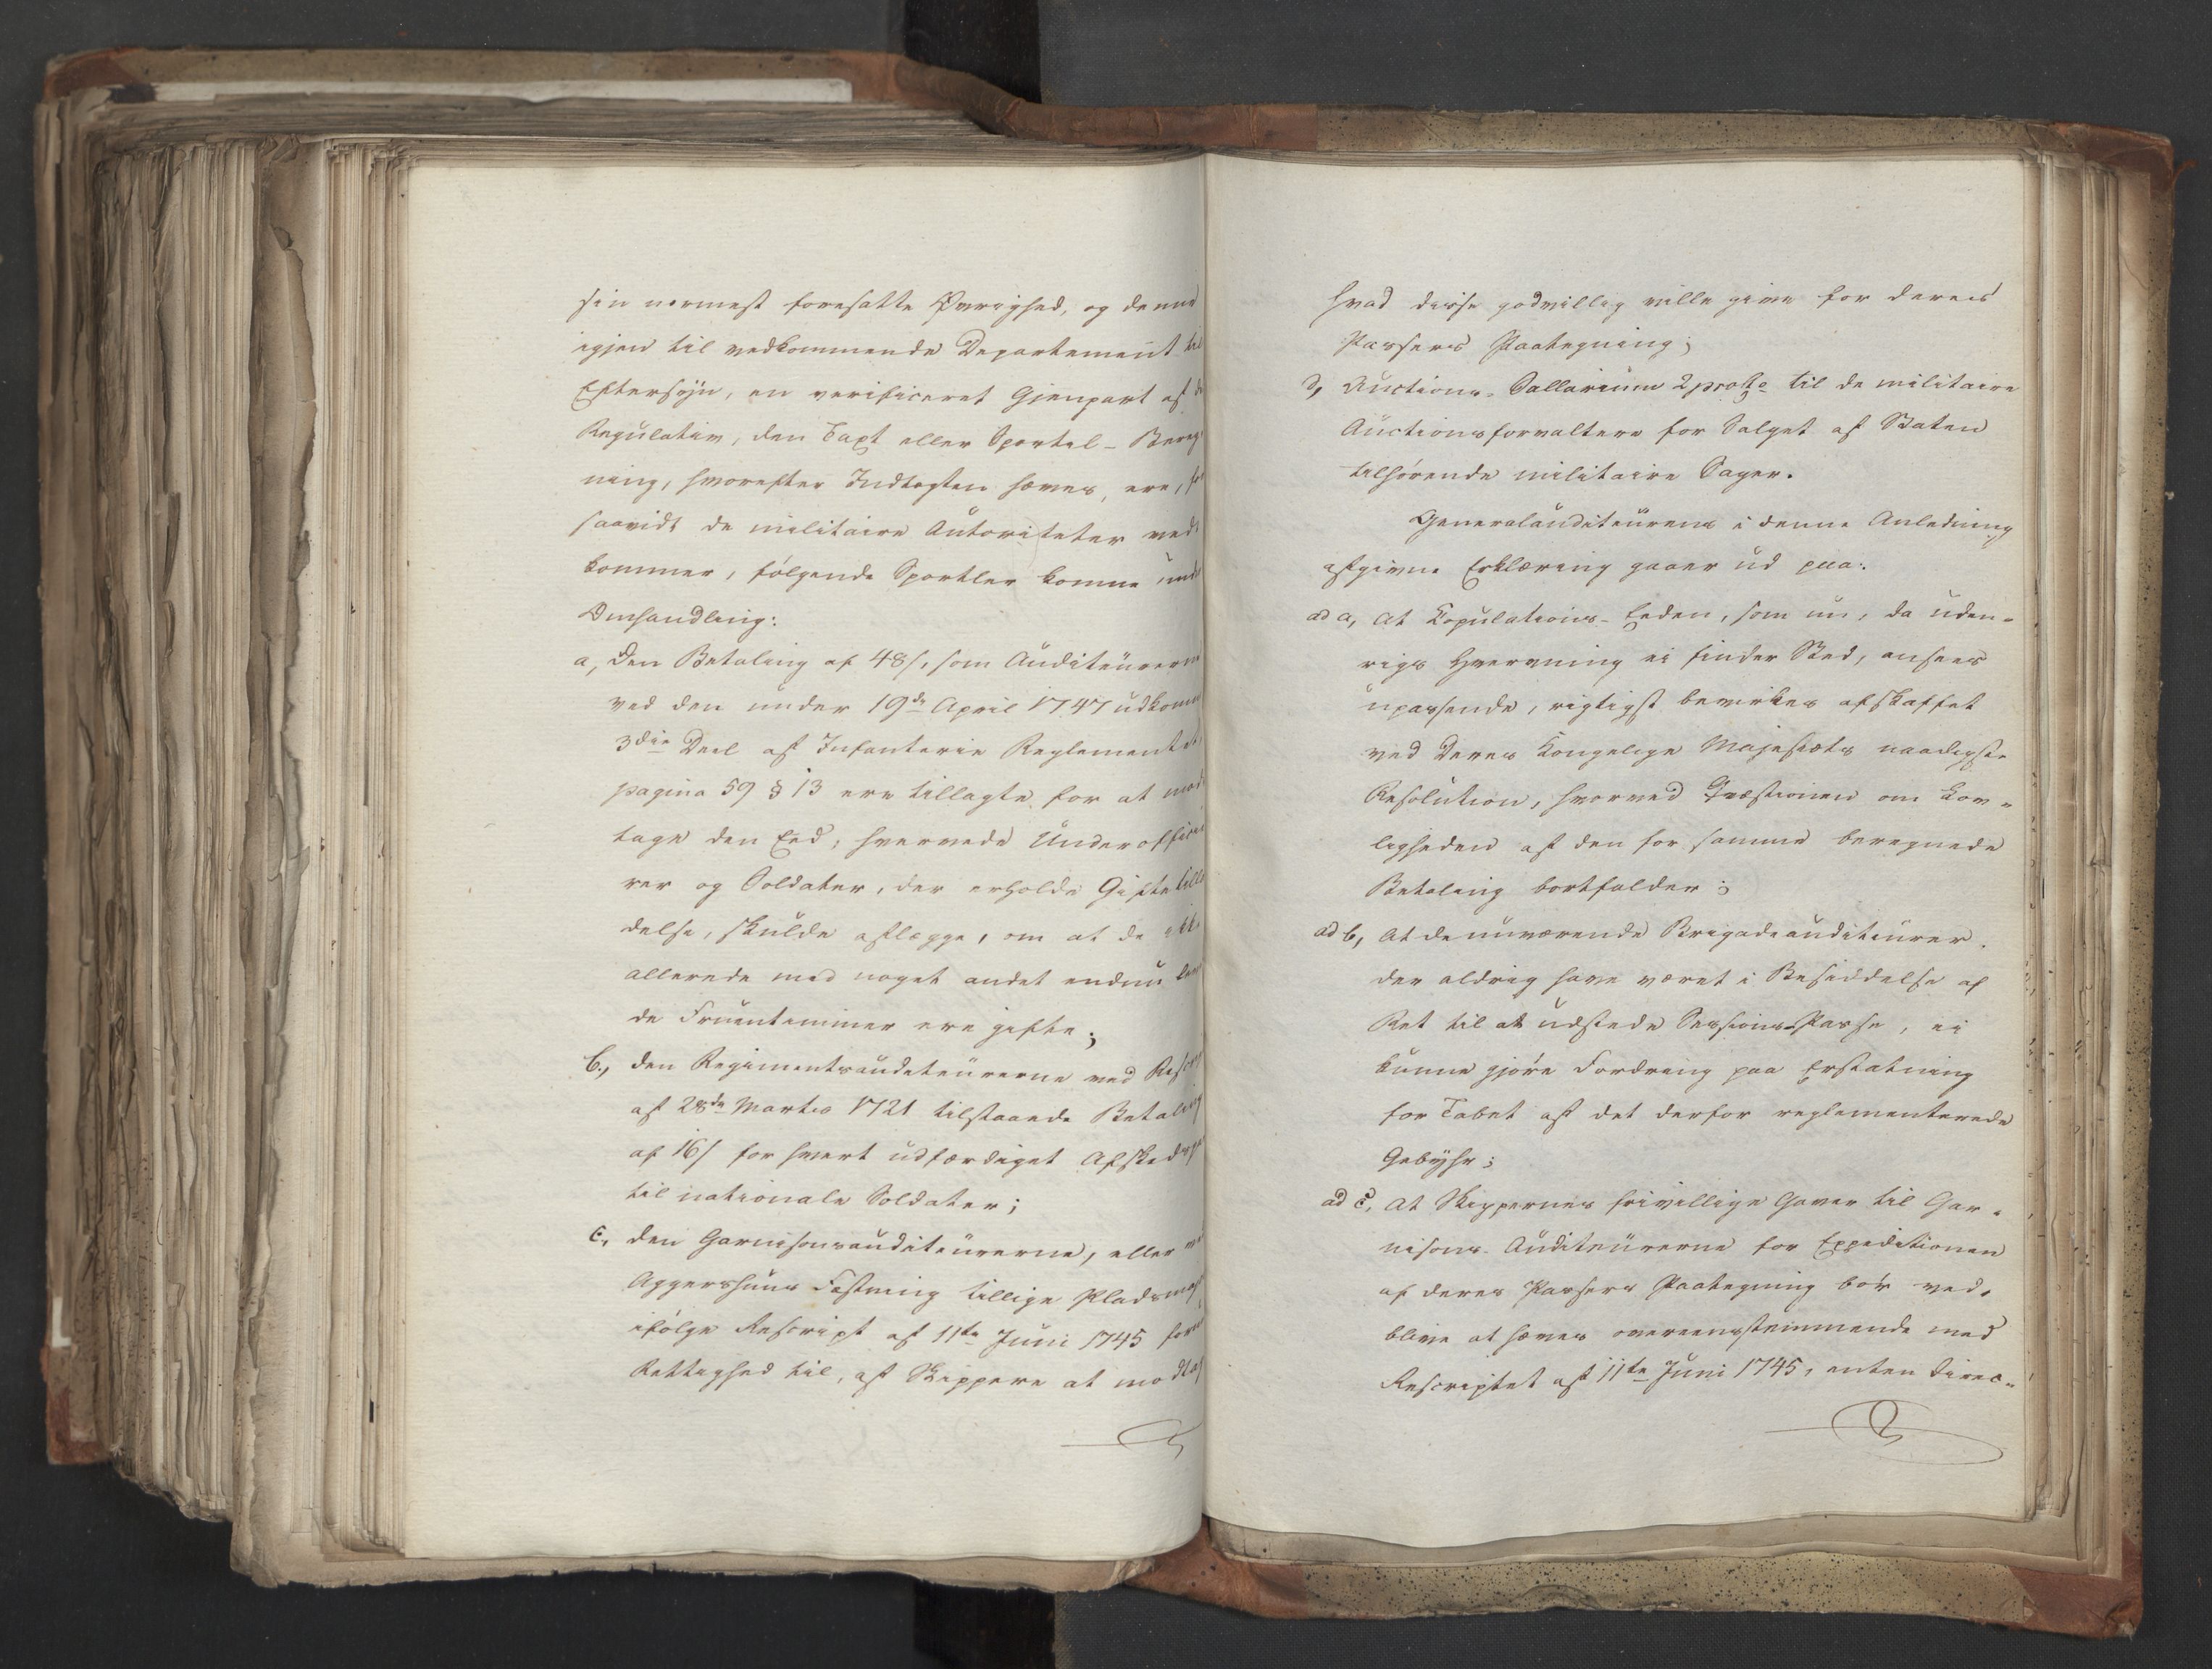 sin nærmest foresatte Øvrighed, og denne
igjen til vedkommende Departement til
Eftersyn, en verificeret Gjenpart af
Regulativ, den Taxt eller Sportel-Bereg
ning, hvorefter Indtægten hæves, ere, for
saavidt de militaire Autoriteter ved
kommer, følgende Sportler komne und
Omhandling:
a, Den Betaling af 48 s, som Auditeurerne
ved den under 19de April 1747 udkomne
3die Deel af Infanterie Reglementet
pagina 59 § 13 ere tillagte for at mod
tage den Eed, hvervede Underoffice
rer og Soldater, der erholde Giftetilla
delse, skulde aflægge, om at de ikke
allerede med noget andet endnu leve
de Fruentimmer ere gifte;
b., den Regimentsauditeurerne ved Rescr
af 28de Martii 1721 tilstaaede Betaling
af 16 s for hvert udfærdiget Afskeds
til nationale Soldater;
c, den Garnisonsauditeurerne, eller ved
Aggershuus Fæstning tillige Pladsmaj
ifølge Rescript af 11te Juni 1745
Rettighed til, af Skippere at modtag
hvad disse godvillig ville give for deres
Passers Paategning;
d, Auctions-Sallarium 2 proCto til de militaire
Auctionsforvaltere for Salget af Staten
tilhørende militaire Sager.
Generalauditeurens i denne Anledning
afgivne Erklæring gaaer ud paa:
ad a, at Copulations-Eeden, som nu, da uden-
rigs Hverving ei finder Sted, ansees
upassende, rigtigst bevirkes afskaffet
ved Deres Kongelige Majestæts naadigste
Resolution, hvorved Qvæstionen om Lov-
ligheden af den for samme beregnede
Betaling bortfalder;
ad b, At de nuværende Brigadeauditeurer,
der aldrig have været i Besiddelse af
Ret til at udstede Sessions-Passe, ei
kunne gjøre Fordring paa Erstatning
for Tabet af det derfor reglementerede
Gebyhr;
ad c, At Skippernes frivillige Gaver til Gar-
nisons-Auditeurerne for Expeditionen
af deres Passers Paategning bør ved-
blive at hæves overeensstemmende med
Rescriptet af 11te Juni 1745, enten direc-